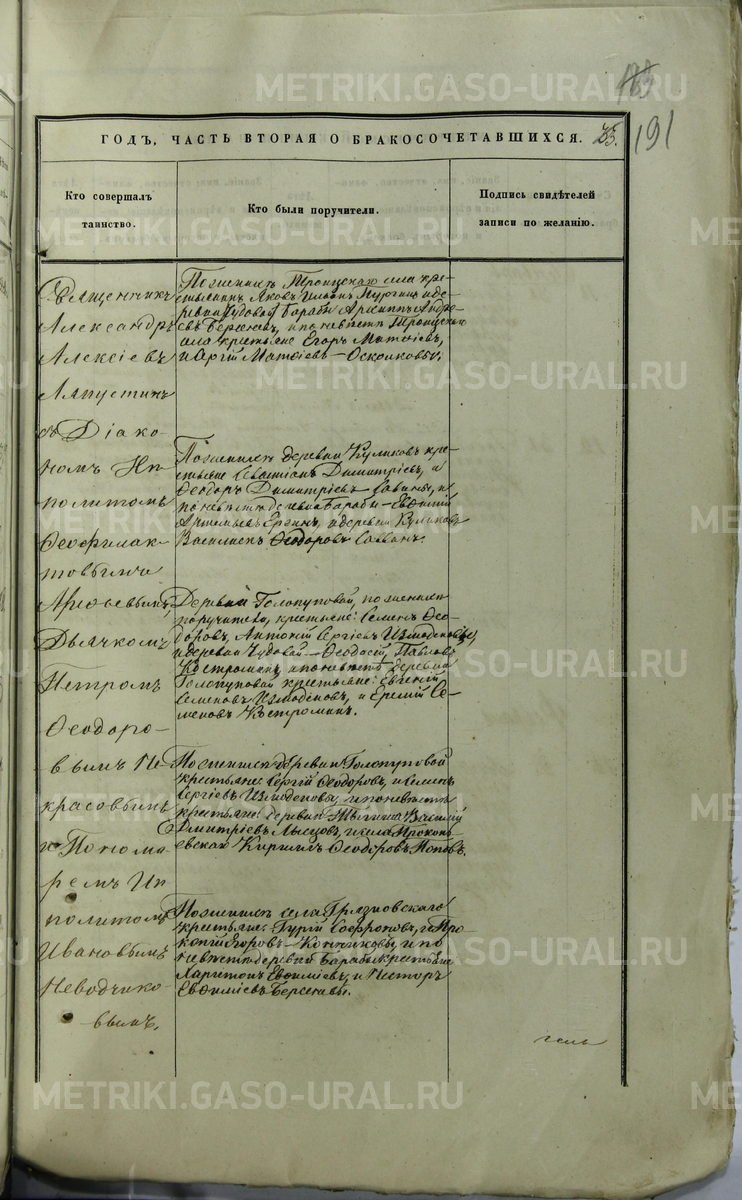 METRIKI.GASO-URAL.RU
191
ГОДЪ, ЧАСТЬ ВТОРАЯ О БРАКОСОЧЕТАВШИХСЯ.
Кто совершалъ
таинство.
Кто были поручители.
Подпись свидѣтелей
записи по желанію.
Священникъ
Александръ
Алексіевъ
Ляпустинъ
съ Діако-
номъ Ип-
политомъ
Ѳеофилак-
товымъ
Дьячкомъ
Петромъ
Ѳеодоро-
вымъ Не-
красовымъ
и Понома-
ремъ Ип-
политомъ
Ивановымъ
Неводчико-
вымъ.
По женихѣ Троицкаго села кре-
стьянинъ Яковъ
Архиппъ Андре-
евъ Берсеневъ, и по невѣстѣ Троицкаго
села крестьяне Егоръ Матѳіевъ,
и Сергій Матѳіевъ Осколковы.
По женихѣ деревни Куликовъ кре-
стьяне Севастіанъ Димитріевъ, и
Ѳеодоръ Димитріевъ Саввины, и
по невѣстѣ деревни Бараби Евѳимій
Артемьевъ и деревни Куликовъ
Ѳеодоровъ Саввинъ.
Деревни Голопуповой, по женихѣ
поручители, крестьяне: Семенъ Ѳео-
доровъ, Антоній Сергіевъ Измоденовы,
и деревни Чудовой Ѳеодосій Павловъ
Костроминъ, и по невѣстѣ деревни
Голопуповой крестьяне: Евгеній
Семеновъ Измоденовъ, и Еремій Се-
меновъ Костроминъ.
По женихѣ деревни Голопуповой
крестьяне: Сергій Ѳеодоровъ, и Семенъ
Сергіевъ Измоденовы, и по невѣстѣ
крестьяне: деревни Василій
Дмитріевъ и села Прокопь-
евскаго Кириллъ Ѳеодоровъ Поповъ.
По женихѣ села Грязновскаго
крестьяне: Гурій Софроновъ, и Про-
копій Егоровъ и по
невѣстѣ деревни Бараби крестьяне
Харитонъ Евѳиміевъ, и Несторъ
Евѳиміевъ Берсеневы.
METRIKI.GASO-URAL.RU